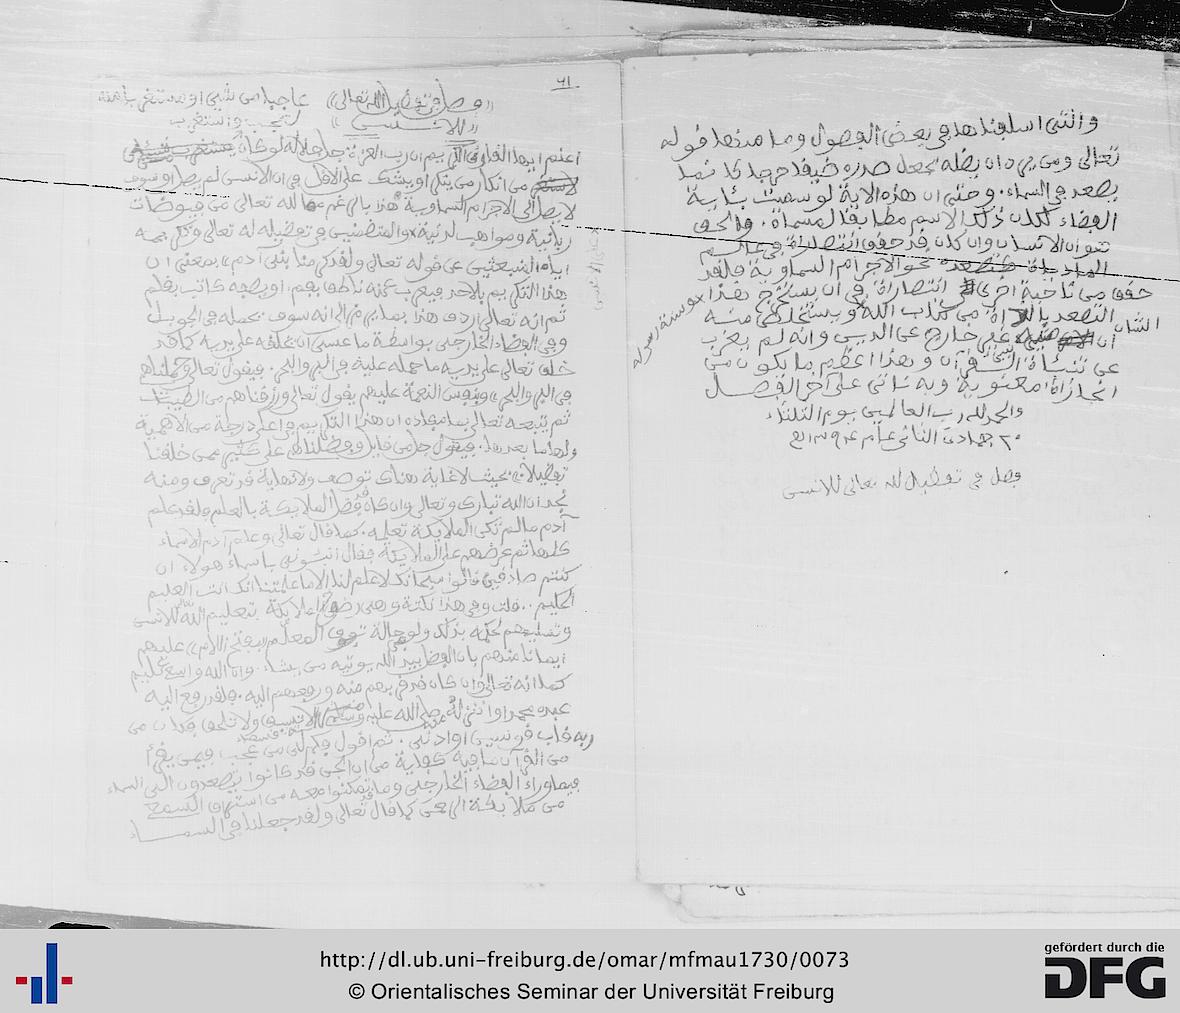 والتي اسلفناها في بعض الفصول وما مدتها قوله
تعالى ومن يرد ان يضله يجعل صدره ضيقا حرجا كانما
يصعد في السماء. وحتى ان هذه الاية لو سميت بئاية
الفضاء لكان ذلك الاسم مطابقا لمسماه. والحق
هو ان الانسان وان كان قد حقق انتصاراة في عالم
المادية نحو الاجرام السماوية فلقد
حقق من ناحية اخرى انتصاراة في ان يستخرج هذا
التصعد من كتاب الله وسنة رسوله ويستخلص منه الشان
ان غير خارج عن الدين وانه لم يعزب
عن تنشاة القرآن وهذا اعظم ما يكون من
انجازاة معنوية وبه ناتي على آخر الفصل
والحمد لله رب العالمين يوم الثلثاء
٢٠ جمادى الثاني عام ١٣٩٤ه
فصل في تفضيل الله تعالى للانسي
٦١
((فصل في تفضيل الله تعالى)) عاجبا من شيئ او مستغربا منه
((للانسي)) لتعجب واستغرب
اعلم ايها القارئ الكريم ان رب العزة جل جلاله لو كان
من انكار من ينكر او يشك على الاقل في ان الانسى لم يصل او سوف
لا يصل الى الاجرام السماوية هذا بالرغم مما لله تعالى من فيوضات
ربانية ومواهب لدنية والمتضمنين في تفضيله له تعالى وتكريمه
اياه المنبعثين عن قوله تعالى ولقد كرمنا بني آدم، بمعنى ان
هذا التكريم بالاحد فيعرب عنه ناطق بفم. او يصفه كاتب بقلم
ثم انه تعالى اردف هذا بما يرمز الى انه سوف يحمله في الجو بل
وفي الفضاء الخارجي بواسطة ما عسى ان يخلقه على يديه كما قد
خلق تعالى على يديه ما حمله عليه في البر والبحر. فيقول تعالى وحملناهم
في البر والبحر، وبنفس النعمة عليهم يقول تعالى ورزقناهم من الطيبات
ثم يتبعه تعالى بما مفاده ان هذا التكريم في اعلى درجة من الاهمية
ولها ما بعدها. فيقول جل من قايل وفضلناهم على كثير ممن خلقنا
تفضيلا. بحيث لا غاية هناك توصف ولا نهاية قد تعرف ومنه
نجد ان الله تبارك وتعالى وان كان قد فضل الملايكة بالعلم فلقد علم
آدم ما لم تكن الملايكة تعلمه. كما قال تعالى وعلم آدم الاسماء
كلها ثم عرضهم على الملايكة فقال انبئوني باسماء هولاء ان
كنتم صادقين قالوا سبحانك لا علم لنا الا ما علمتنا انك انت العليم
الحكيم.. قلت وفي هذا نكتة وهي رضى الملايكة بتعليم الله للانسى
وتسليمهم لحكمه بذلك ولو في حالة تفوق المعلم ((بفتح اللام)) عليهم
ايمانا منهم بان الفضل بيد الله يوتيه من يشاء. وان الله واسع عليم
كما انه تعالى وان كان قد قربهم منه ورفعهم اليه. فلقد رفع اليه
عبده محمدا وانزله صلى الله عليه وسلم منه ولا تلحق فكان من
ربه قاب قوسين او ادنى. ثم اقول ولكن لمن عجب فيمن يقرأ
من القرآن ما فيه كفاية من ان الجن قد كانوا يصعدون الى السماء
فيما وراء الفضاء الخارجي وما تمكنوا معه من استراق السمع
من ملايكة الرحمن كما قال تعالى ولقد جعلنا في السماء
http://dl.ub.uni-freiburg.de/omar/mfmau1730/0073
© Orientalisches Seminar der Universität Freiburg
gefördert durch die
DFG